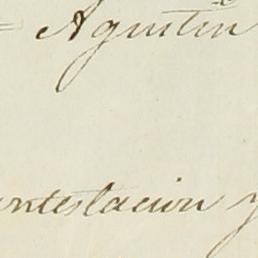 = Agustin
ontestacion y